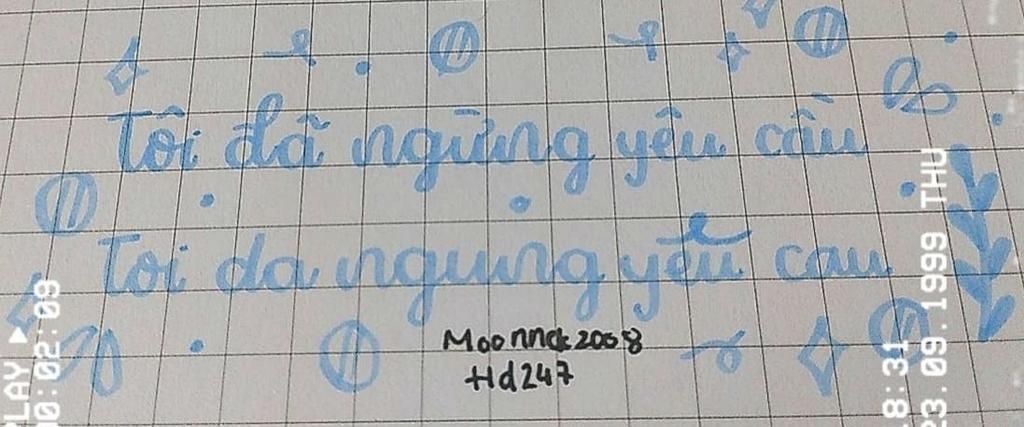 Tôi đã ngừng yêu cầu
Toi da ngung yêu cau
Moonnck2008
Hd247
PLAY ▶
0:02:09
8:31
23.09.1999 THU